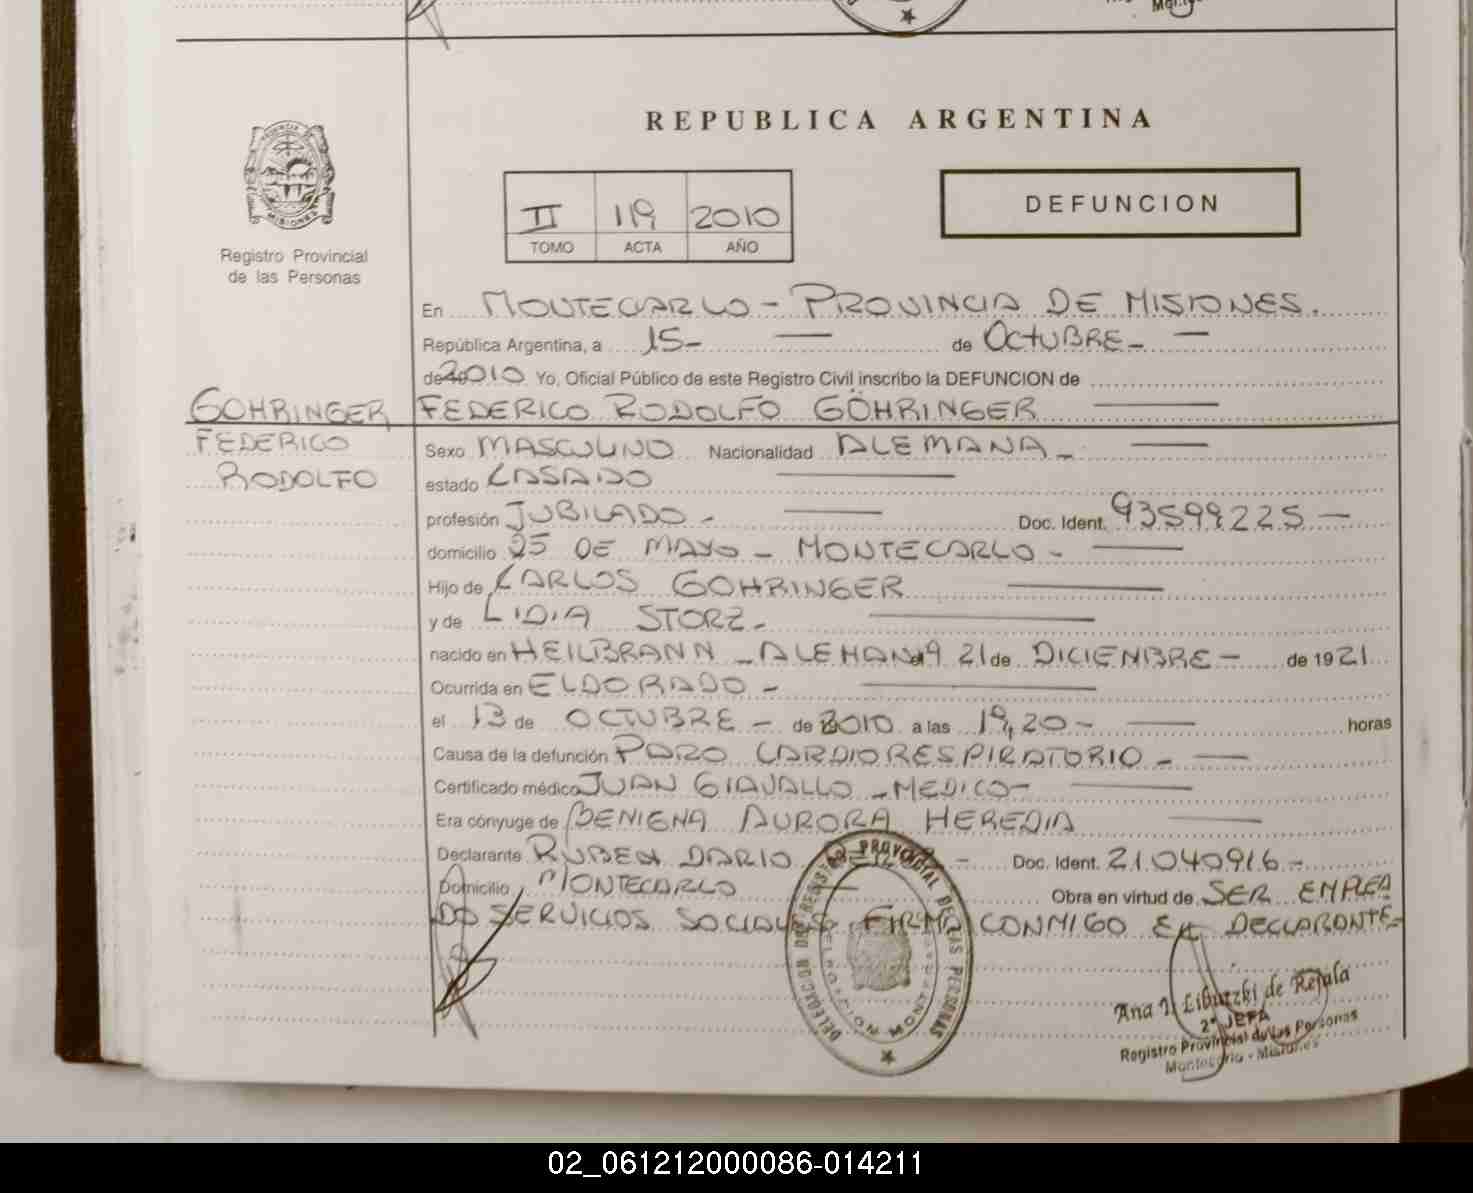 REPUBLICA ARGENTINA
II 119 2010
TOMO ACTA AÑO
DEFUNCION
PROVINCIA DE MISIONES
Registro Provincial
de las Personas
En MONTECARLO - PROVINCIA DE MISIONES.
República Argentina, a 15- de OCTUBRE-
de 2010 Yo, Oficial Público de este Registro Civil inscribo la DEFUNCION de
GOHRINGER
FEDERICO
RODOLFO
FEDERICO RODOLFO GÖHRINGER
Sexo MASCULINO Nacionalidad ALEMANA-
estado CASADO
profesión JUBILADO - Doc. Ident. 93599225-
domicilio 25 DE MAYO - MONTECARLO -
Hijo de CARLOS GOHRINGER
y de LIDIA STORZ-
nacido en HEILBRANN - ALEMAN el 21 de DICIEMBRE - de 1921
Ocurrida en ELDORADO -
el 13 de OCTUBRE - de 2010 a las 19,20- horas
Causa de la defunción PARO CARDIORESPIRATORIO -
Certificado médico JUAN GIAVALLO - MEDICO-
Era cónyuge de BENIGNA AURORA HEREDIA
Declarante RUBEN DARIO - Doc. Ident. 21.040916-
Domicilio MONTECARLO Obra en virtud de SER EMPLEA
DO SERVICIOS SOCIALES FIRMA CONMIGO EL DECLARANTE-
DELEGACION DEL REGISTRO PROVINCIAL DE LAS PERSONAS
Ana I. Libutzki de Rejala
2ª JEFA
Registro Provincial de las Personas
Montecarlo - Misiones
02_061212000086-014211